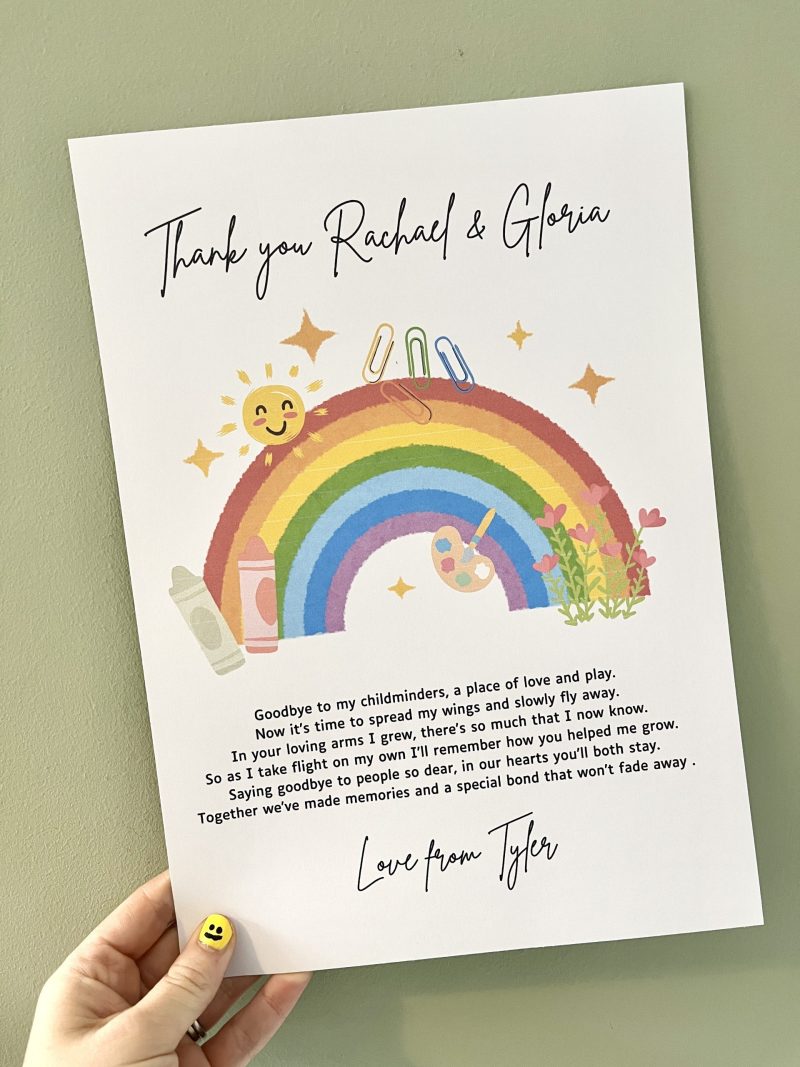 Thank you Rachael & Gloria
Goodbye to my childminders, a place of love and play.
Now it's time to spread my wings and slowly fly away.
In your loving arms I grew, there's so much that I now know.
So as I take flight on my own I'll remember how you helped me grow.
Saying goodbye to people so dear, in our hearts you'll both stay.
Together we've made memories and a special bond that won't fade away .
Love from Tyler